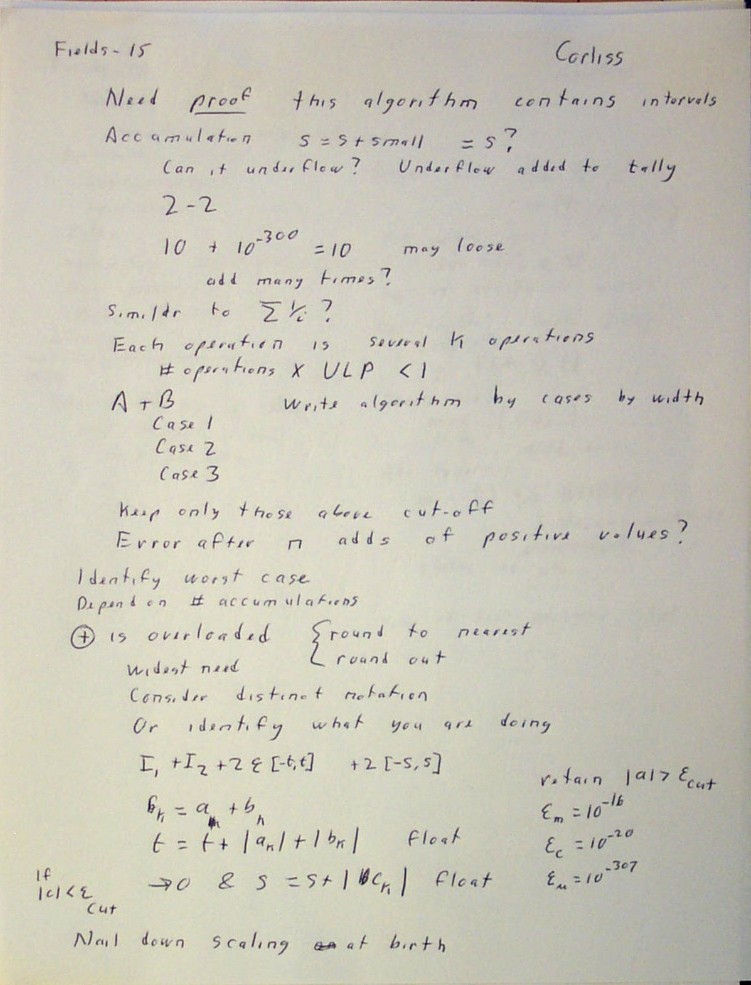 Fields-15 Corliss
Need proof this algorithm contains intervals
Accumulation s = s + small = s?
Can it underflow? Underflow added to tally
2-2
10 + 10^-300 = 10 may loose
add many times?
Similar to Σ 1/i ?
Each operation is several
# operations X ULP < 1
A + B Write algorithm by cases by width
Case 1
Case 2
Case 3
Keep only those above cut-off
Error after n adds of positive values?
Identify worst case
Depend on # accumulations
⊕ is overloaded { round to nearest
round out
Widest need
Consider distinct notation
Or identify what you are doing
I₁ + I₂ + 2 ε [-t,t] + 2 [-s,s]
retain |a| > ε_cut
= a + b
ε_m = 10^-16
t = t + |a_k| + |b_k| float
ε_c = 10^-20
If |c| < ε_cut → 0 & s = s + |c_k| float
= 10^-307
Nail down scaling at birth